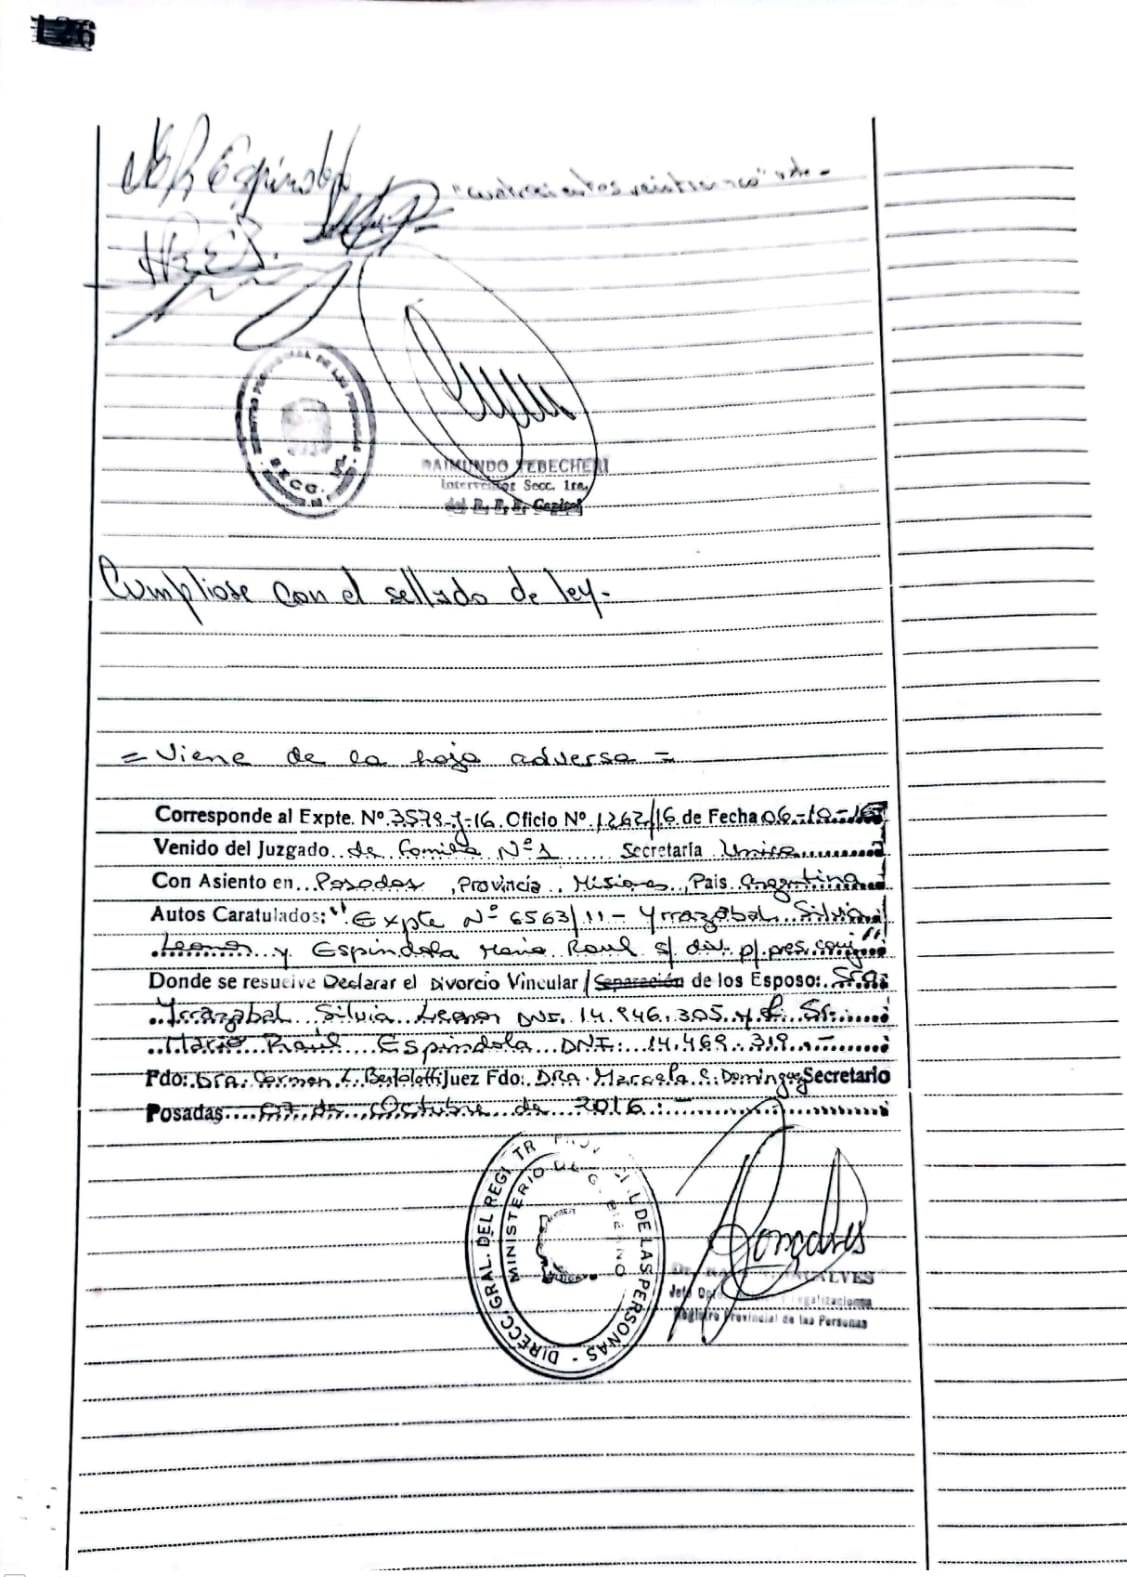 126
M. R. Espindola
"cuatrocientos veintiuno" vale -
RAIMUNDO YEBECHERI
Interventor Secc. 1ra.
del R. P. P. Capital
SECC. 1ª
Cumpliose con el sellado de ley.-
= Viene de la hoja adversa =
Corresponde al Expte. Nº 3579-J-16. Oficio Nº 1262/16 de Fecha 06-10-16
Venido del Juzgado de Familia Nº 1 Secretaría Unica
Con Asiento en Posadas, Provincia Misiones, Pais Argentina
Autos Caratulados: "Expte Nº 6563/11 - Yrrazabal Silvia
Leonor y Espindola Mario Raul s/ div. p/ pres. conj"
Donde se resuelve Declarar el Divorcio Vincular / Separación de los Esposo: Sra.
Yrrazabal Silvia Leonor DNI. 14.946.305 y el Sr.
Mario Raúl Espindola DNI: 14.469.319.-
Fdo: Dra. Carmen L. Bertolotti Juez Fdo: DRA. Marcela S. Dominguez Secretario
Posadas 07 de Octubre de 2016:-
DIRECC. GRAL. DEL REGISTRO PROVINCIAL DE LAS PERSONAS -
MINISTERIO DE GOBIERNO
Gonçalves
GONCALVES
Jefe Dpto. Legalizaciones
Registro Provincial de las Personas